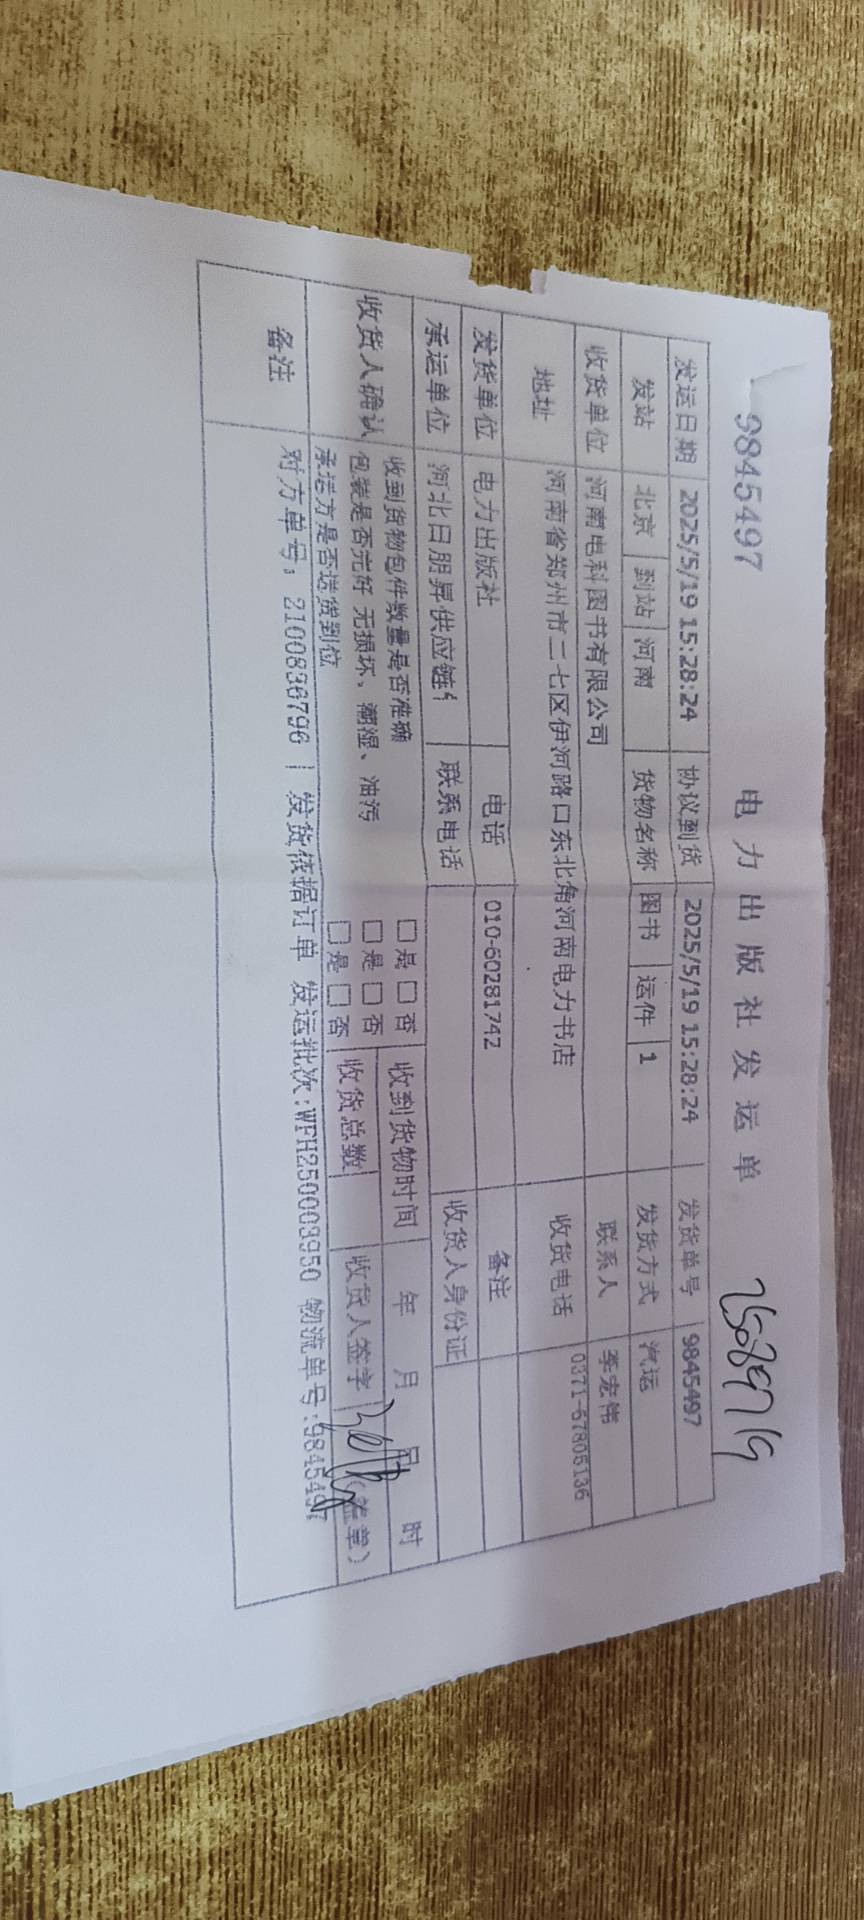 9845497
电力出版社发运单
发运日期 2025/5/19 15:28:24 协议到货 2025/5/19 15:28:24 发货单号 9845497
发站 北京 到站 河南 货物名称 图书 运件 1 发货方式 汽运
收货单位 河南电科图书有限公司 联系人 李宏伟
地址 河南省郑州市二七区伊河路口东北角河南电力书店 收货电话 0371-67805136
发货单位 电力出版社 电话 010-60281742 备注
承运单位 河北日朋昇供应链 联系电话 收货人身份证
收货人确认 收到货物包件数量是否准确 □是 □否 收到货物时间 年 月 日 时
包装是否完好 无损坏、潮湿、油污 □是 □否 收货总数 收货人签字 (盖章)
承运方是否送货到位 □是 □否
备注 对方单号: 2100836796 | 发货依据订单 发运批次:WFH250003950 物流单号:9845497